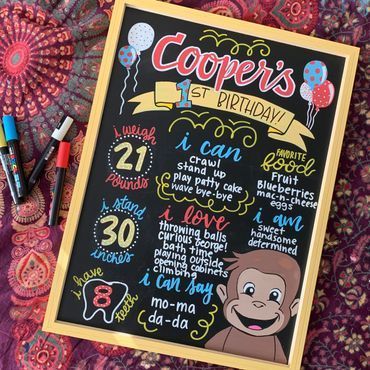 Cooper's
1ST BIRTHDAY!
i weigh
21
pounds
i can
crawl
stand up
play patty cake
wave bye-bye
FAVORITE
food
Fruit
Blueberries
mac-n-cheese
eggs
i stand
30
inches
i love
throwing balls
curious george!
bath time
playing outside
opening cabinets
climbing
i am
sweet
handsome
determined
i have
8
teeth
i can say
mo-ma
da-da